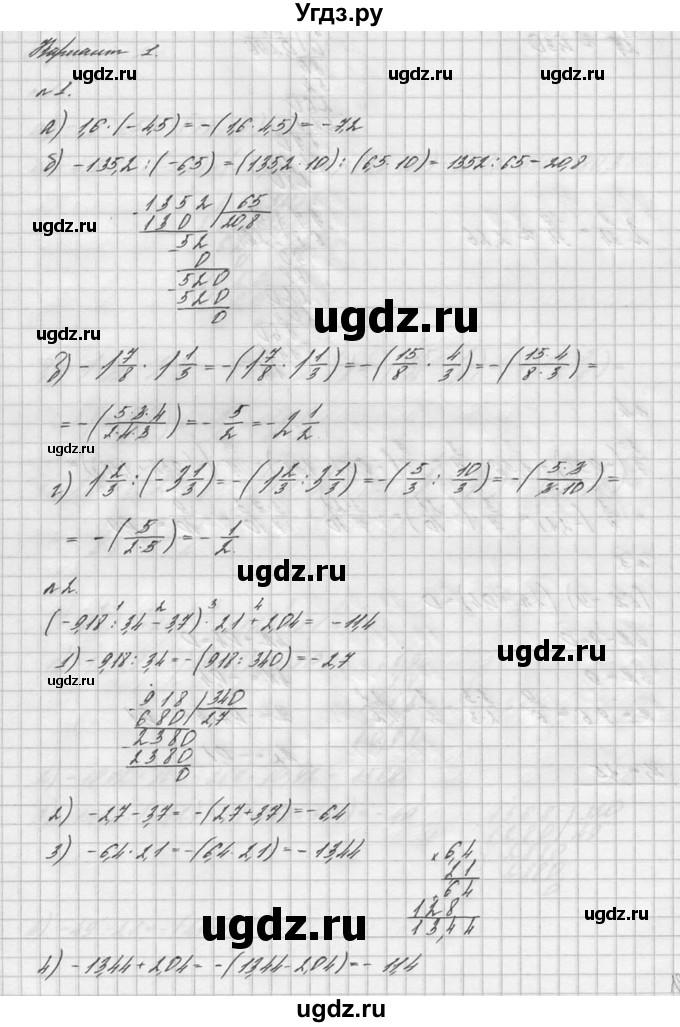 Угдз.ру
Вариант 1.
ugdz.ru ugdz.ru ugdz.ru
№1.
а) 1,6·(-4,5)=-(1,6·4,5)=-7,2
б) -135,2:(-6,5)=(135,2·10):(6,5·10)=1352:65=20,8
- 1352 | 65
130 | 20,8
ugdz.ru ugdz.ru
- 52
0
- 520
520
0
ugdz.ru
ugdz.ru
в) -1 7/8 · 1 1/3 = -(1 7/8 · 1 1/3) = -(15/8 · 4/3) = -(15·4/8·3) =
= -(5·3·4/2·4·3) = -5/2 = -2 1/2
ugdz.ru
г) 1 2/3 : (-3 1/3) = -(1 2/3 : 3 1/3) = -(5/3 : 10/3) = -(5·3/3·10) =
= -(5/2·5) = -1/2.
ugdz.ru
№2.
(-9,18 :¹ 3,4 -² 3,7) ·³ 2,1 +⁴ 2,04 = -11,4
ugdz.ru
1) -9,18:3,4=-(918:340)=-2,7
- 918 | 340
680 | 2,7
- 2380
2380
0
ugdz.ru
2) -2,7-3,7=-(2,7+3,7)=-6,4
3) -6,4·2,1=-(6,4·2,1)=-13,44
× 6,4
2,1
+ 64
128
13,44
ugdz.ru
ugdz.ru
4) -13,44+2,04=-(13,44-2,04)=-11,4
ugdz.ru